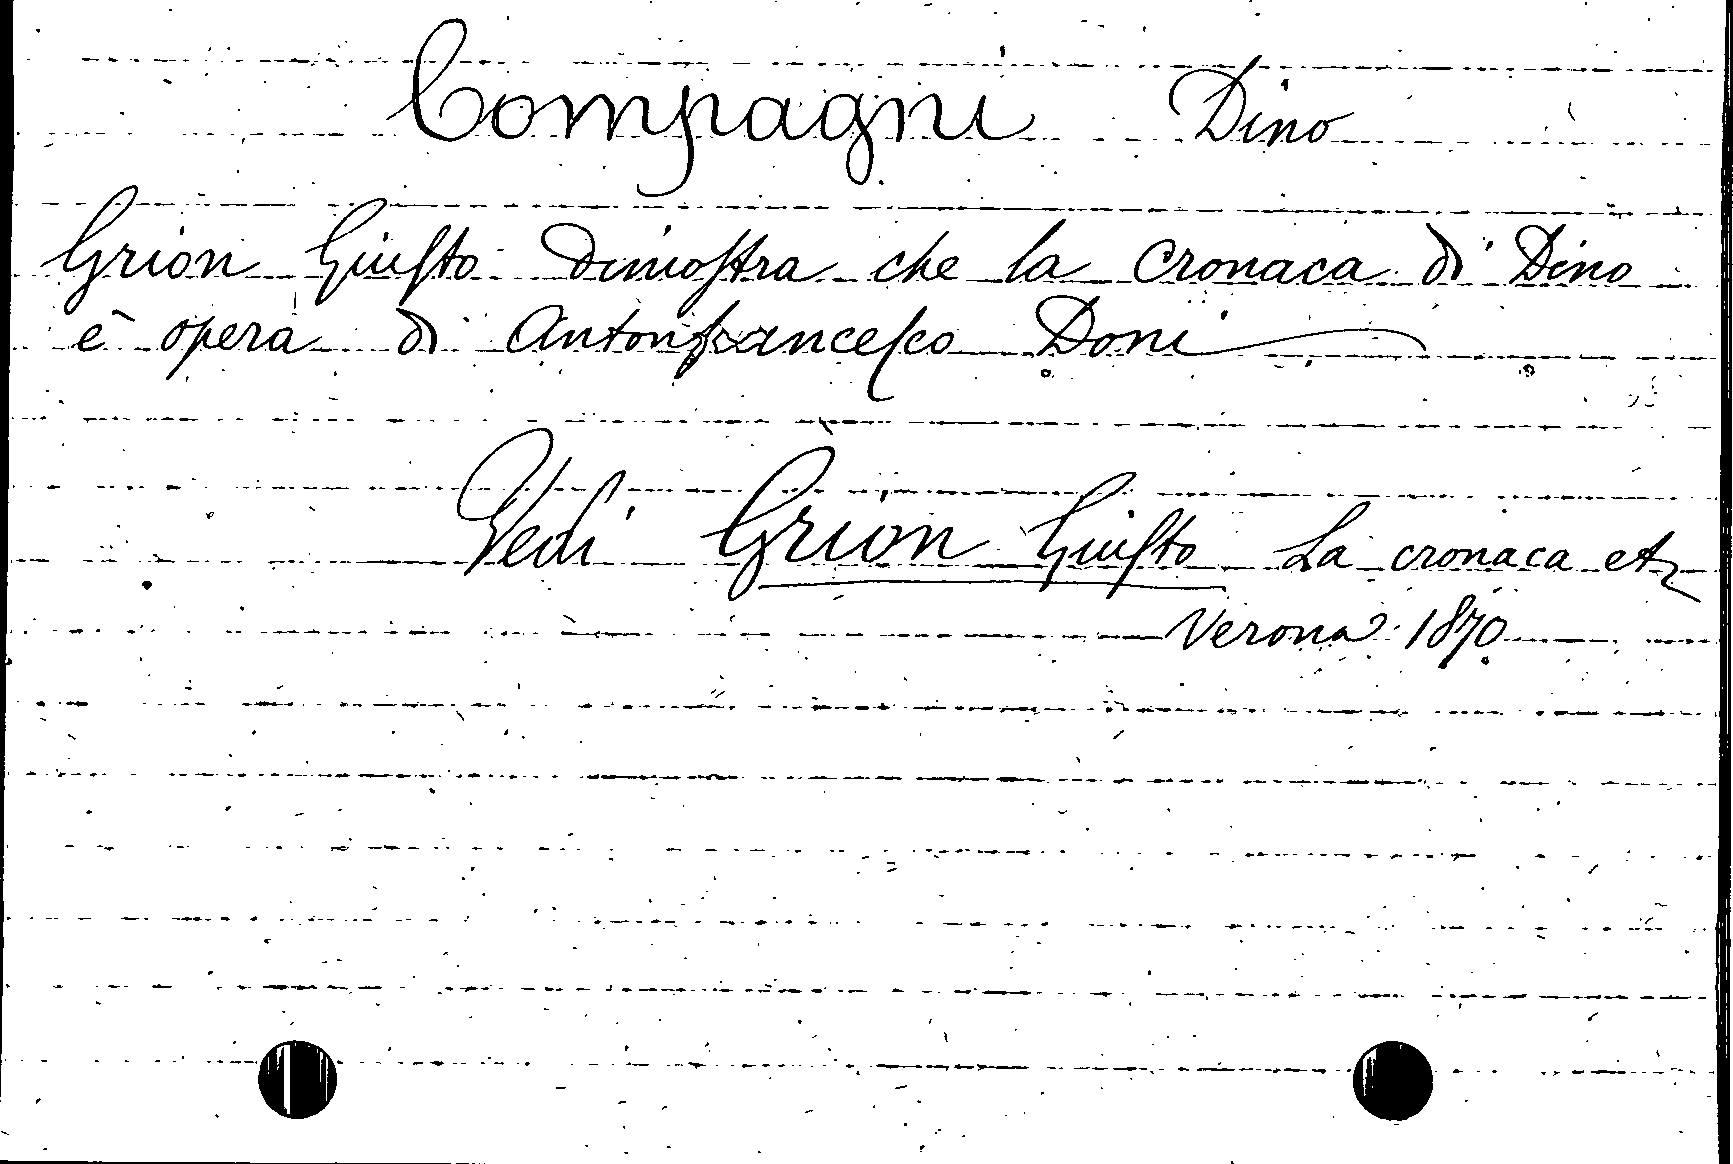 Compagni Dino
Grion Giusto dimostra che la cronaca di Dino
è opera di Antonfrancesco Doni
Vedi Grion Giusto La cronaca etc
Verona 1870